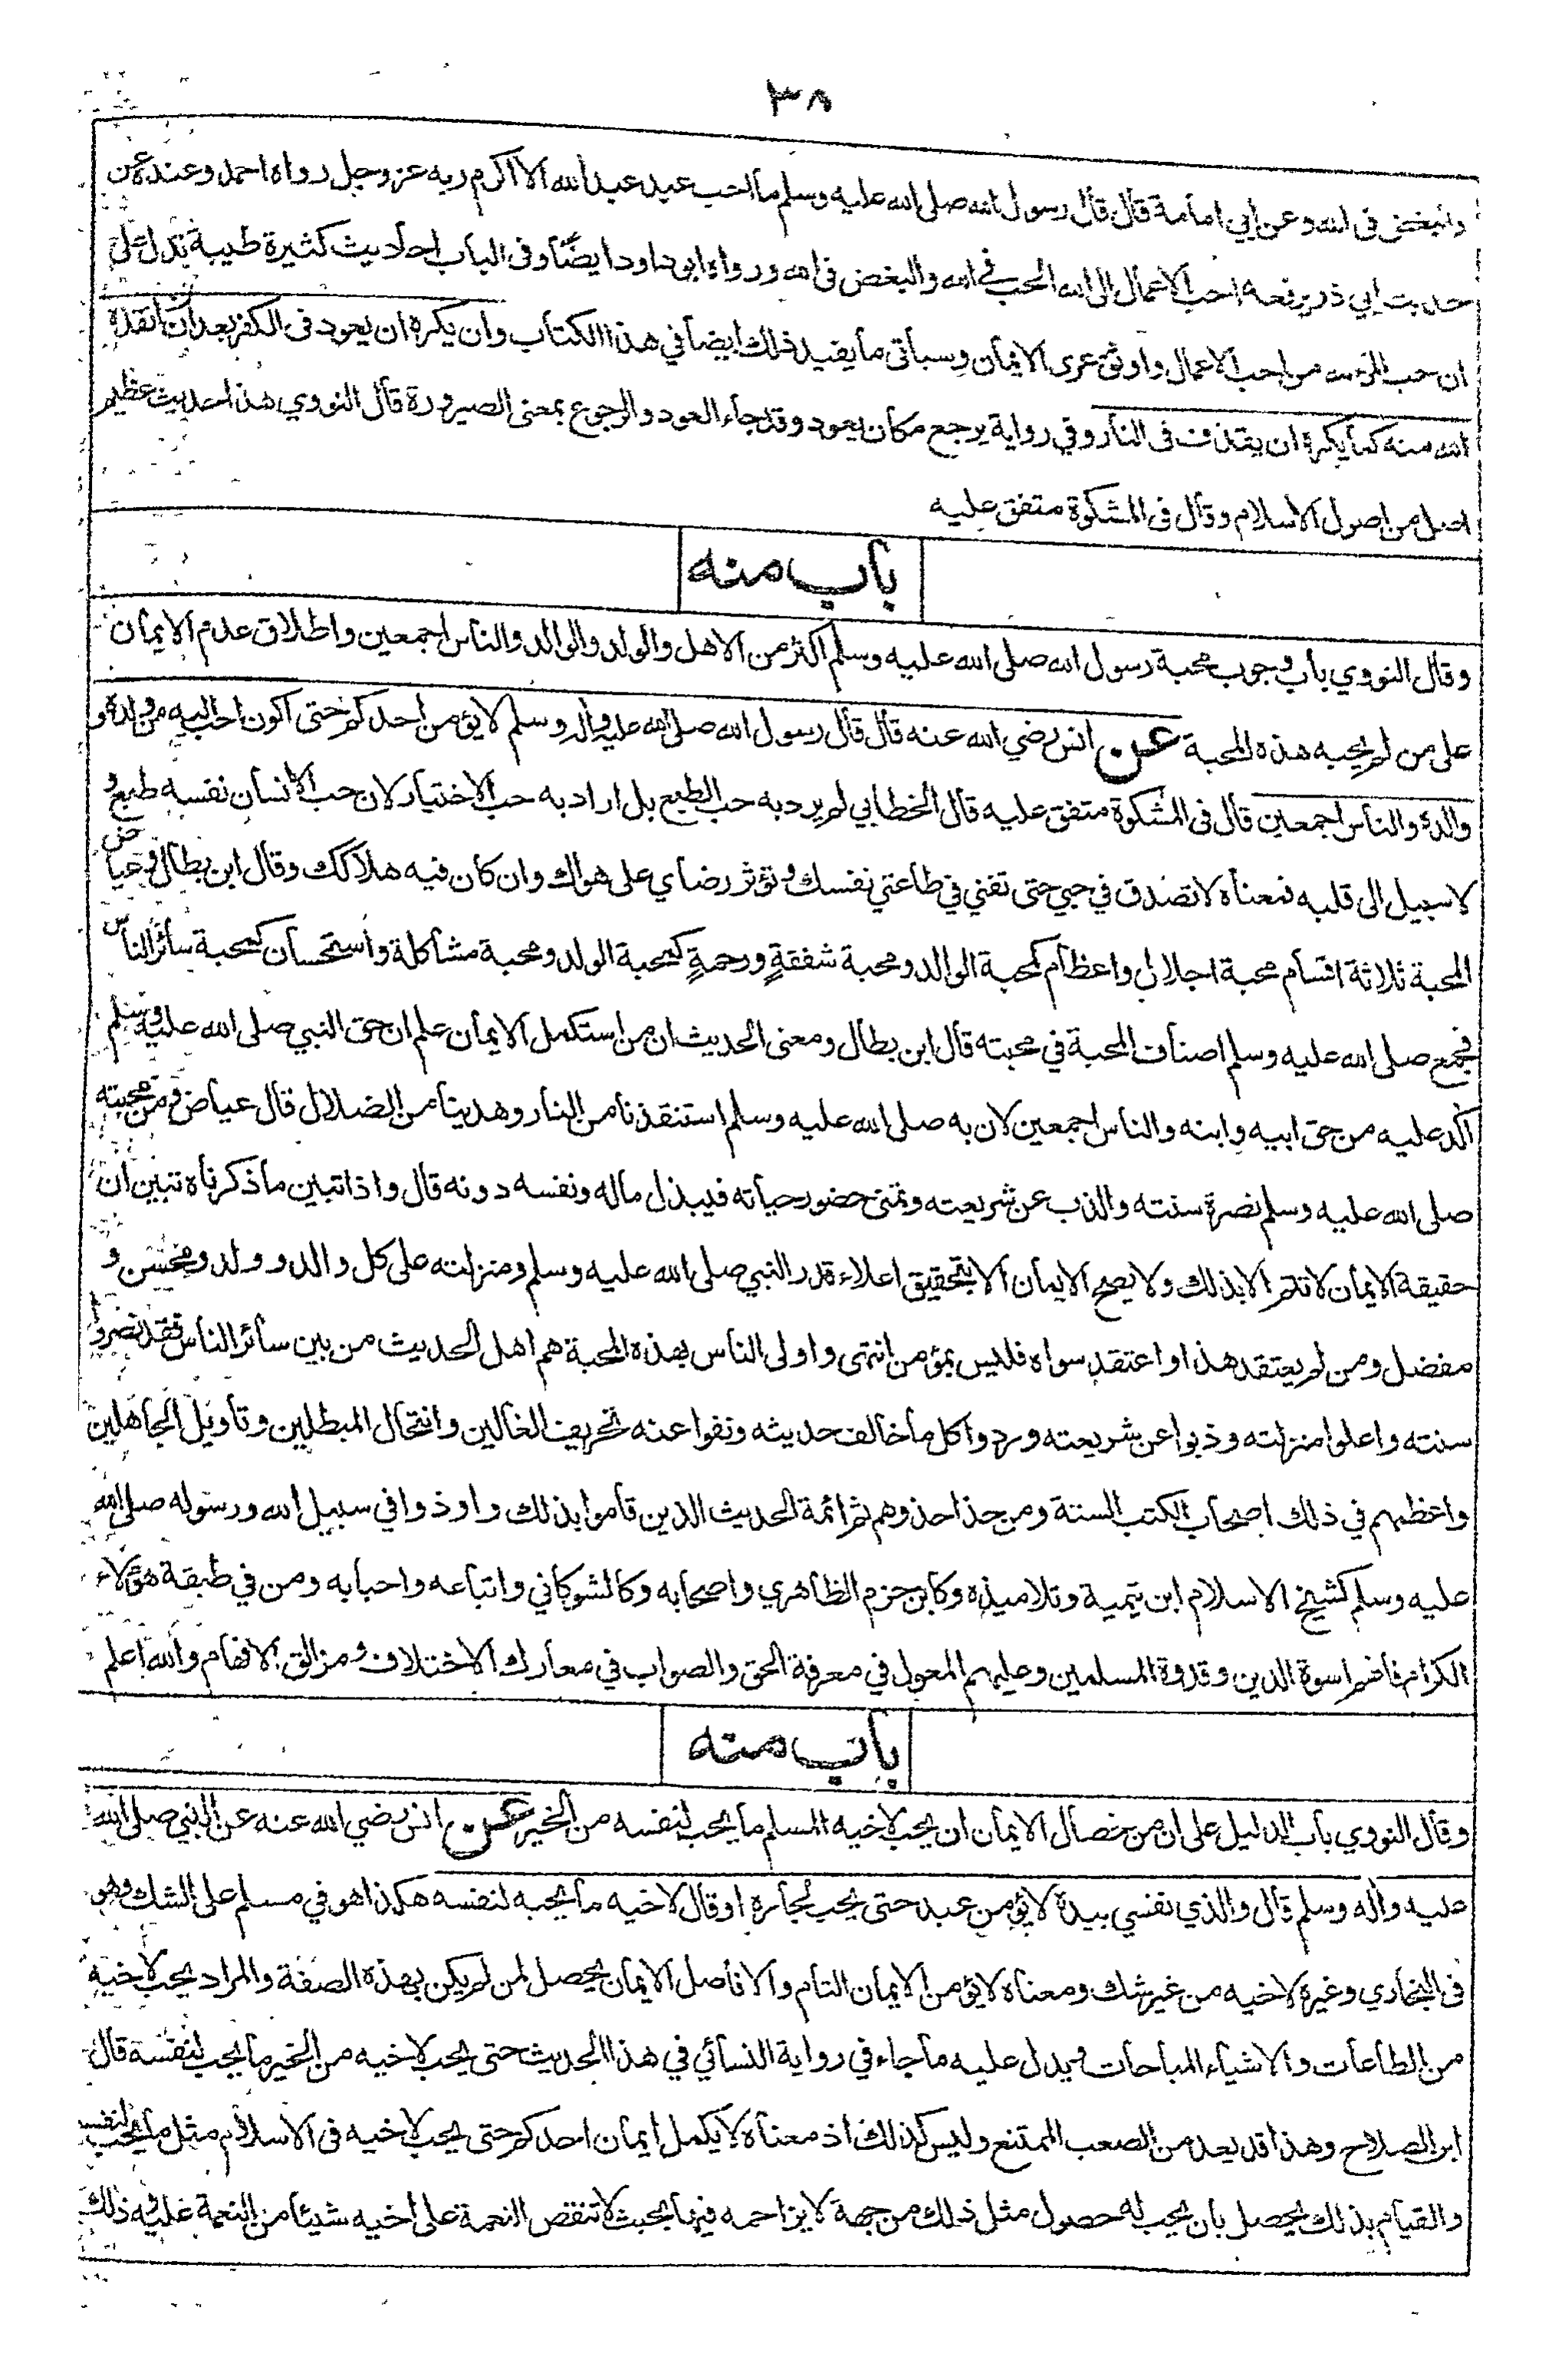 ٣٨
والبغض فى الله وعن ابي امامة قال قال رسول الله صلى الله عليه وسلم ما احب عبد عبدا لله الا اكرم ربه عز وجل رواه احمد وعنده عن
حديث ابي ذر يرفعه احب الاعمال الى الله الحب في الله والبغض فى الله ورواه ابو داود ايضا وفى الباب احاديث كثيرة طيبة تدل على
ان حب المرء لله من احب الاعمال واوثق عرى الايمان وسيأتى ما يفيد ذلك ايضا في هذا الكتاب وان يكره ان يعود فى الكفر بعد ان انقذه
الله منه كما يكره ان يقذف فى النار وفي رواية يرجع مكان يعود وقد جاء العود والرجوع بمعنى الصيرورة قال النووي هذا حديث عظيم
اصل من اصول الاسلام وقال فى المشكوة متفق عليه
باب منه
وقال النووي باب وجوب محبة رسول الله صلى الله عليه وسلم اكثر من الاهل والولد والوالد والناس اجمعين واطلاق عدم الايمان
على من لم يحبه هذه المحبة عن انس رضي الله عنه قال قال رسول الله صلى الله عليه وآله وسلم لا يؤمن احدكم حتى اكون احب اليه من ولده و
والده والناس اجمعين قال فى المشكوة متفق عليه قال الخطابي لم يرد به حب الطبع بل اراد به حب الاختيار لان حب الانسان نفسه طبع و
لا سبيل الى قلبه فمعناه لا تصدق في حبي حتى تفني في طاعتي نفسك وتؤثر رضاي على هواك وان كان فيه هلاكك وقال ابن بطال وعياض
المحبة ثلاثة اقسام محبة اجلال واعظام كمحبة الوالد ومحبة شفقةٍ ورحمةٍ كمحبة الولد ومحبة مشاكلة واستحسان كمحبة سائر الناس
فجمع صلى الله عليه وسلم اصناف المحبة في محبته قال ابن بطال ومعنى الحديث ان من استكمل الايمان علم ان حق النبي صلى الله عليه وسلم
آكد عليه من حق ابيه وابنه والناس اجمعين لان به صلى الله عليه وسلم استنقذنا من النار وهدينا من الضلال قال عياض ومن محبته
صلى الله عليه وسلم نصرة سنته والذب عن شريعته وتمنى حضور حياته فيبذل ماله ونفسه دونه قال واذا تبين ما ذكرناه تبين ان
حقيقة الايمان لا تتم الا بذلك ولا يصح الايمان الا بتحقيق اعلاء قدر النبي صلى الله عليه وسلم ومنزلته على كل والد وولد ومحسن و
مفضل ومن لم يعتقد هذا او اعتقد سواه فليس بمؤمن انتهى واولى الناس بهذه المحبة هم اهل الحديث من بين سائر الناس فقد نصروا
سنته واعلوا منزلته وذبوا عن شريعته وردوا كل ما خالف حديثه ونفوا عنه تحريف الغالين وانتحال المبطلين وتأويل الجاهلين
واعظمهم في ذلك اصحاب الكتب الستة ومن حذا حذوهم ثم ائمة الحديث الذين قاموا بذلك واوذوا في سبيل الله ورسوله صلى الله
عليه وسلم كشيخ الاسلام ابن تيمية وتلاميذه وكابن حزم الظاهري واصحابه وكالشوكاني واتباعه واحبابه ومن في طبقة هؤلاء
الكرام فانهم اسوة الدين وقدوة المسلمين وعليهم المعول في معرفة الحق والصواب في معارك الاختلاف ومزالق الافهام والله اعلم
باب منه
وقال النووي باب الدليل على ان من خصال الايمان ان يحب لاخيه المسلم ما يحب لنفسه من الخير عن انس رضي الله عنه عن النبي صلى الله
عليه وآله وسلم قال والذي نفسي بيده لا يؤمن عبد حتى يحب لجاره او قال لاخيه ما يحبه لنفسه هكذا هو في مسلم على الشك وهو
فى البخاري وغيره لاخيه من غير شك ومعناه لا يؤمن الايمان التام والا فاصل الايمان يحصل لمن لم يكن بهذه الصفة والمراد يحب لاخيه
من الطاعات والاشياء المباحات ويدل عليه ما جاء في رواية النسائي في هذا الحديث حتى يحب لاخيه من الخير ما يحب لنفسه قال
ابن الصلاح وهذا قد يعد من الصعب الممتنع وليس كذلك اذ معناه لا يكمل ايمان احدكم حتى يحب لاخيه فى الاسلام مثل ما يحب لنفسه
والقيام بذلك يحصل بان يحب له حصول مثل ذلك من جهة لا يزاحمه فيها بحيث لا تنقص النعمة على اخيه شيئا من النعمة عليه وذلك